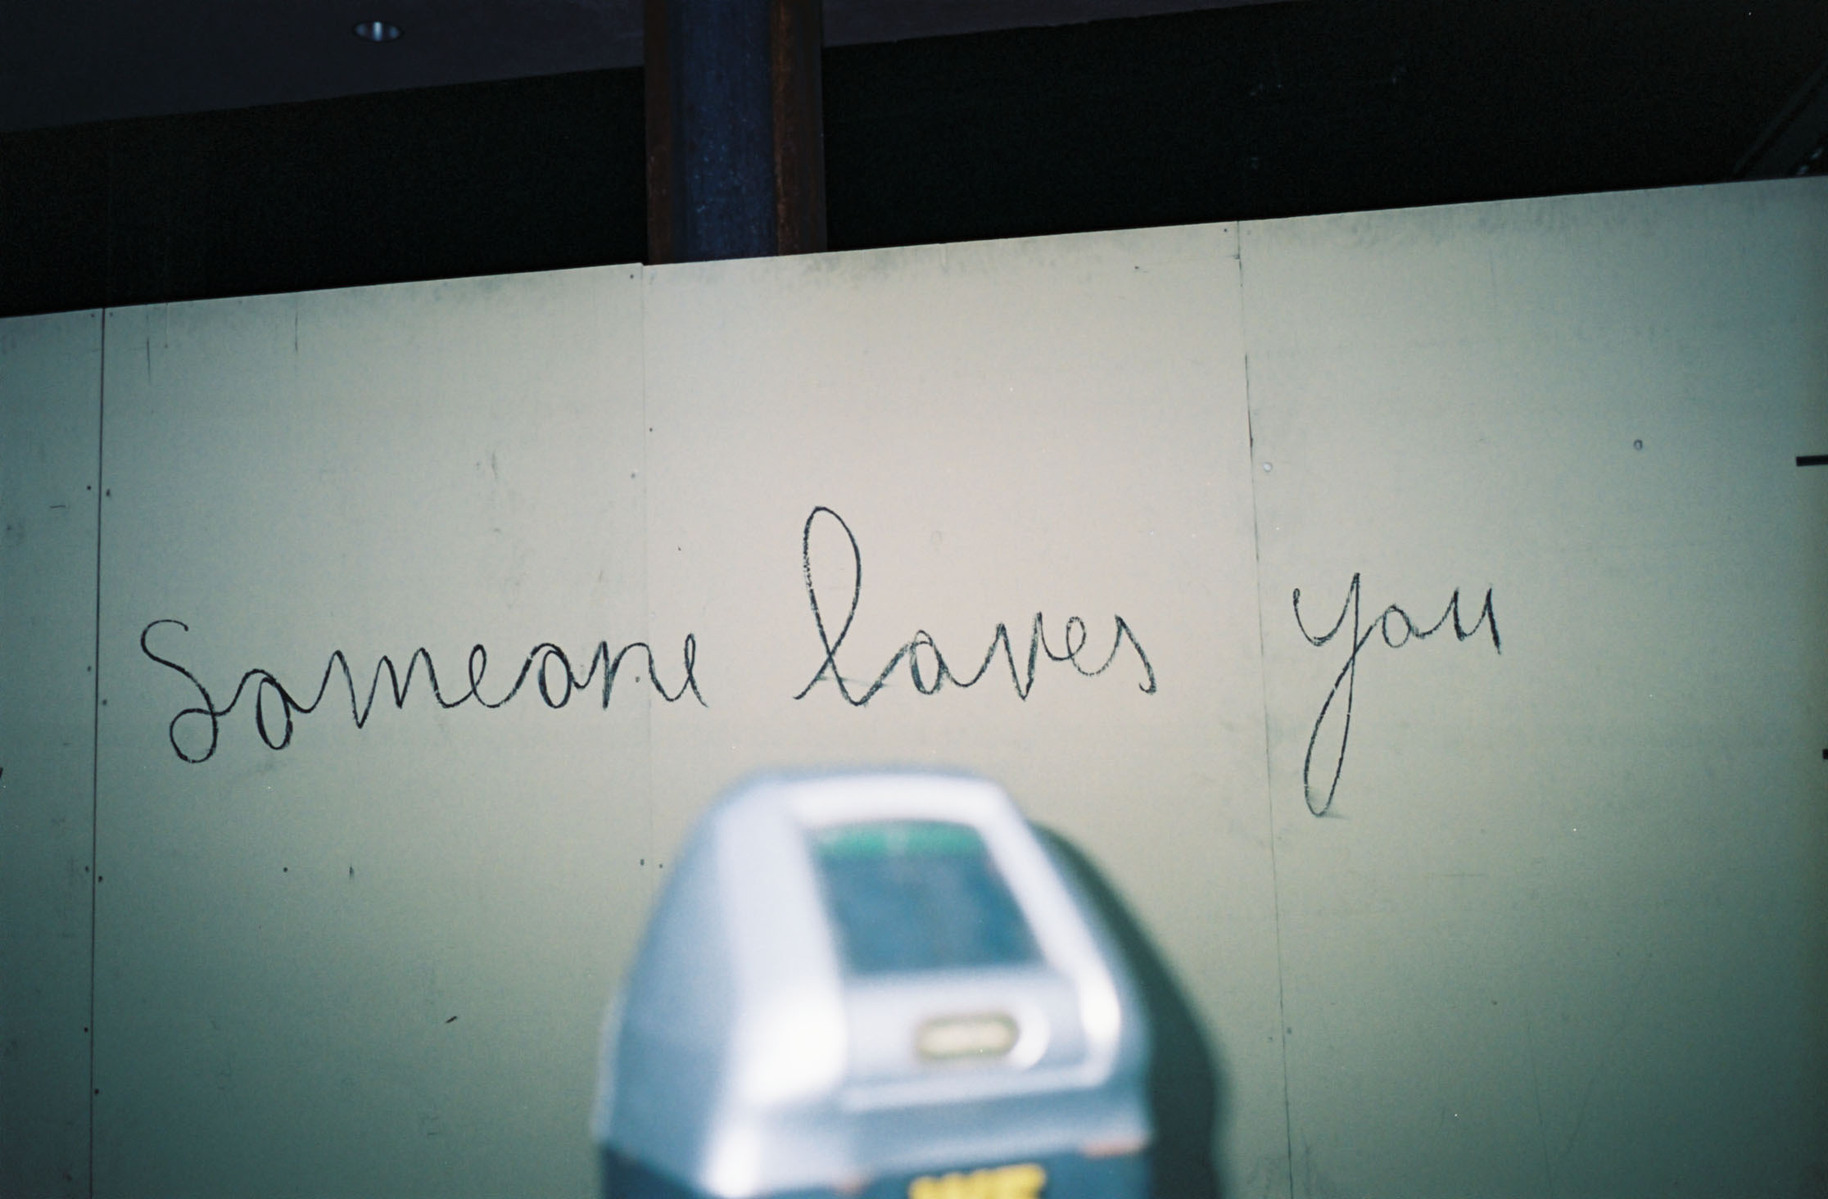 Someone loves you